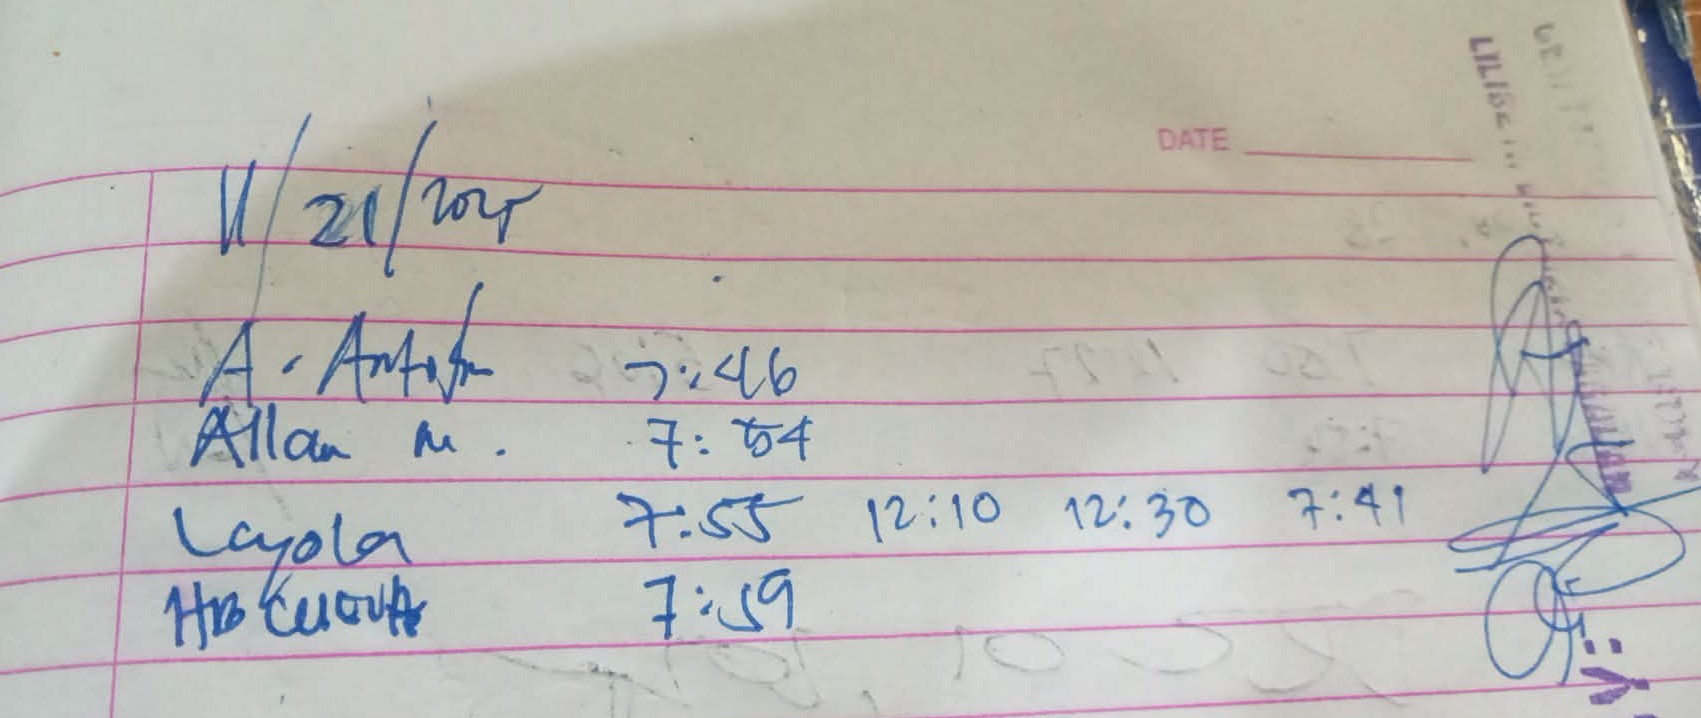 DATE
11/21/2025
A. Antofn 7:46
Allan M. 7:54
Layola 7:55 12:10 12:30 7:41
HB CUEVA 7:59